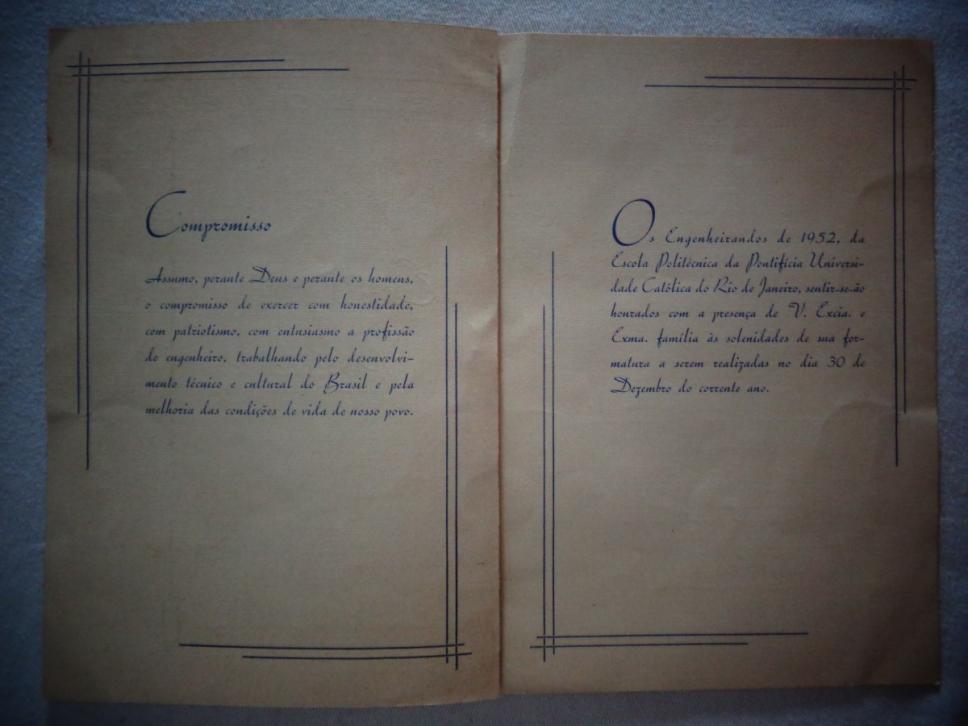 Compromisso
Assumo, perante Deus e perante os homens,
o compromisso de exercer com honestidade,
com patriotismo, com entusiasmo a profissão
de engenheiro, trabalhando pelo desenvolvi-
mento técnico e cultural do Brasil e pela
melhoria das condições de vida de nosso povo.
Os Engenheirandos de 1952, da
Escola Politécnica da Pontifícia Universi-
dade Católica do Rio de Janeiro, sentir-se-ão
honrados com a presença de V. Excia. e
Exma. família às solenidades de sua for-
matura a serem realizadas no dia 30 de
Dezembro do corrente ano.